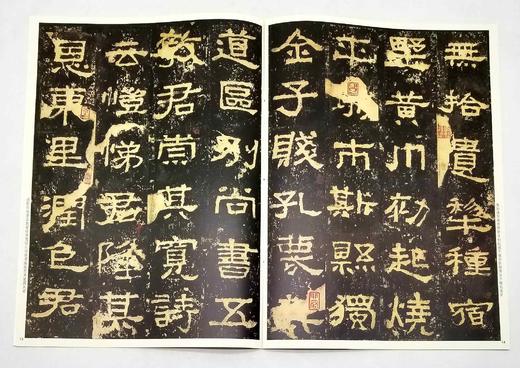 無拾遺犂種宿
壄黃巾初起燒
平城市斯縣獨
全子賤孔蔑
道區別尚書五
教君崇其寬詩
云愷悌君隆其
恩東里潤色君